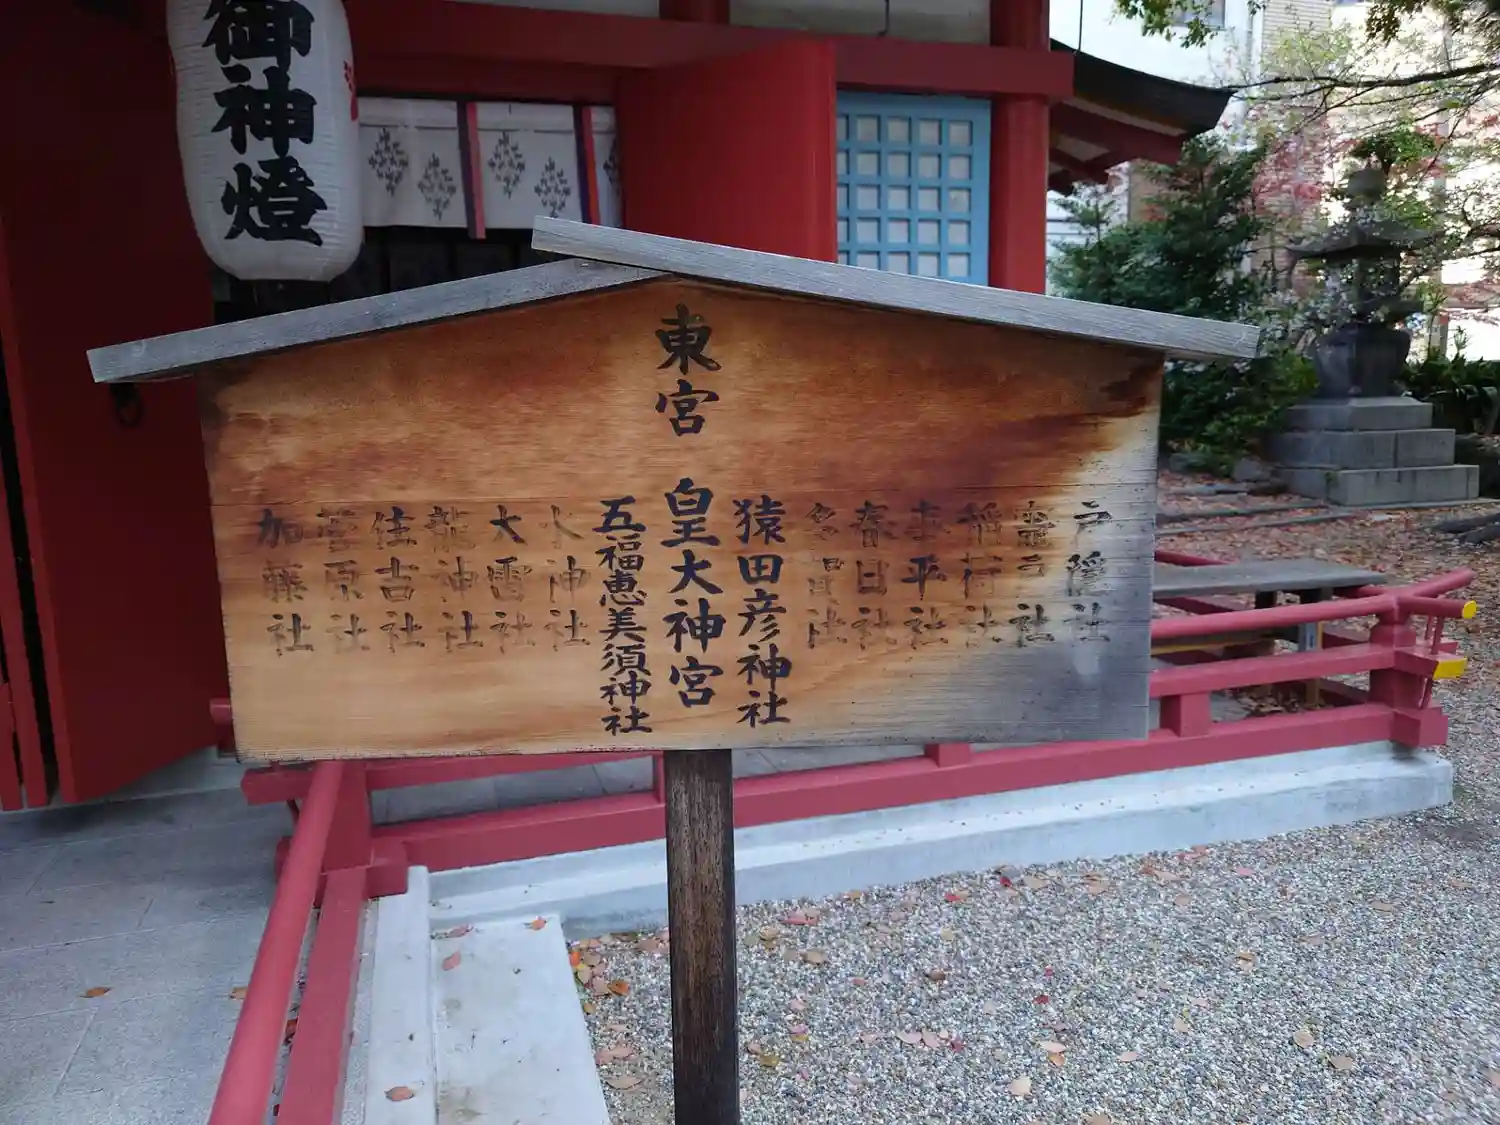 御神燈
東宮
戸隠社
稲荷社
春日社
多賀社
猿田彦神社
皇大神宮
五福恵美須神社
水神社
大雷社
龍神社
住吉社
菅原社
加藤社